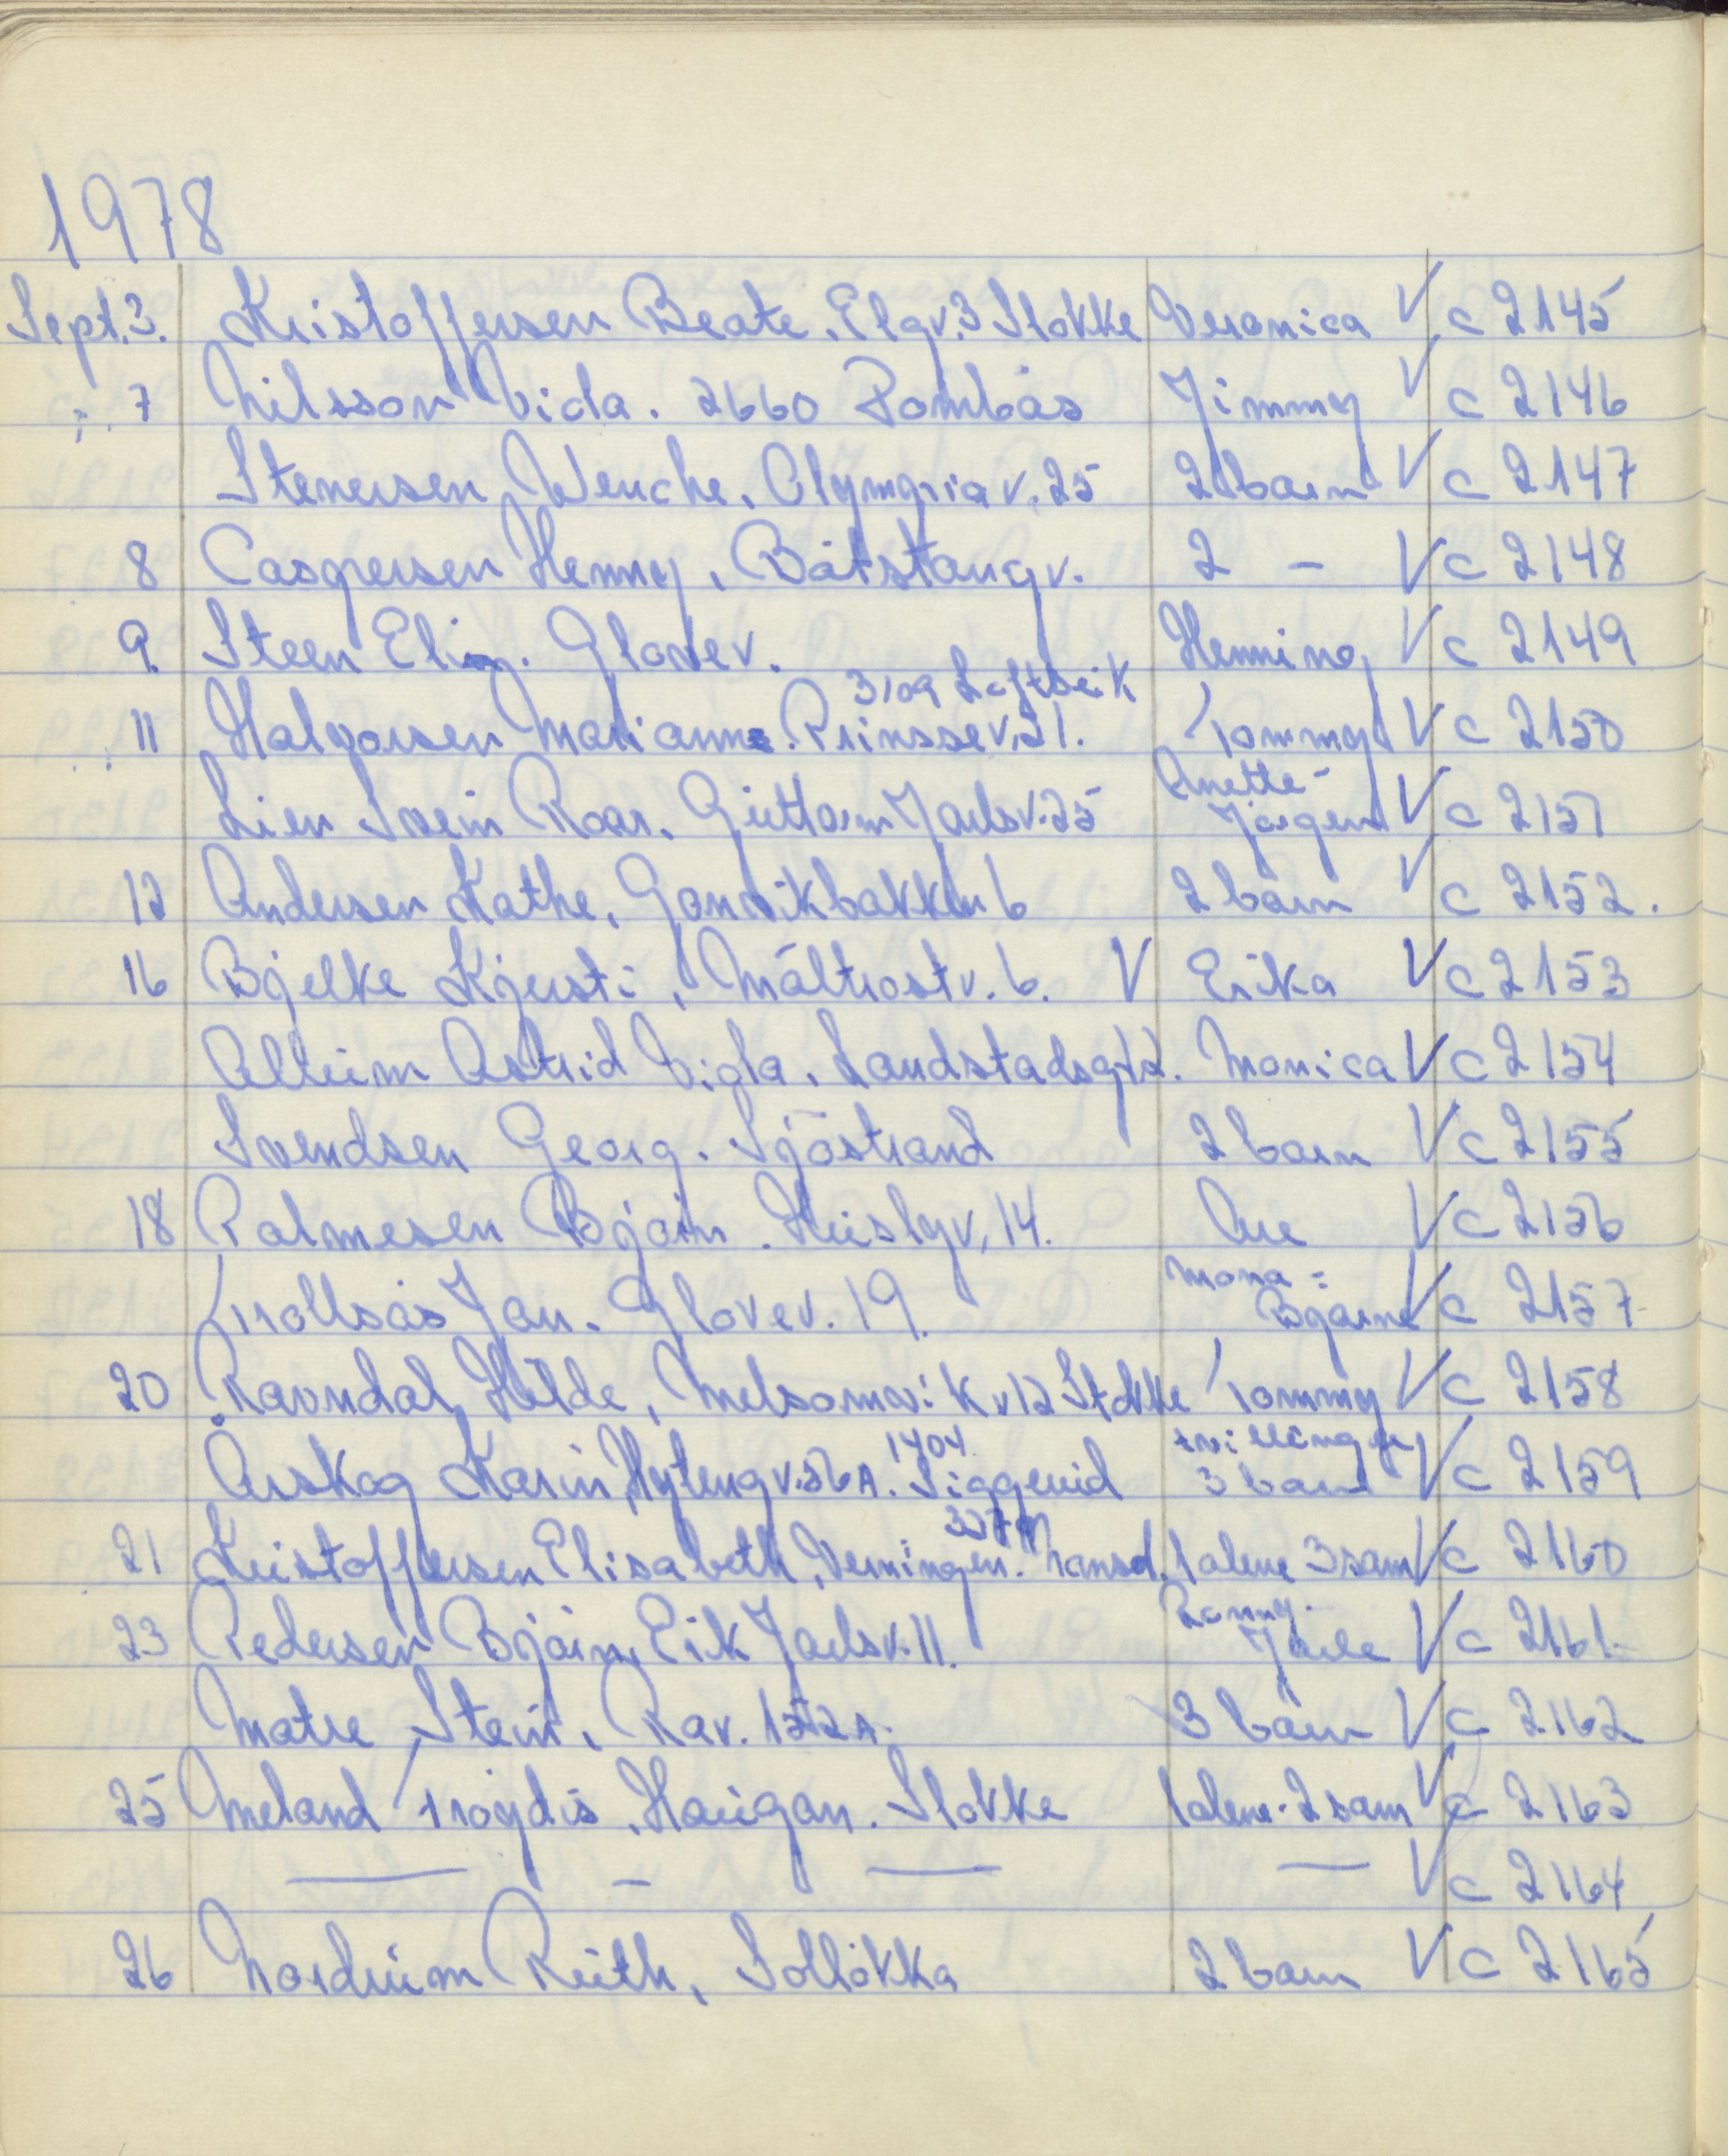 1978
Sept. 3. Kristoffersen Beate. Elgv. 3 Stokke Veronica V c 2145
" 7 Nilsson Vida. 2660 Dombås Jimmy V c 2146
Stenersen Wenche, Olympia v. 25 2 barn V c 2147
8 Caspersen Henny, Båtstangv. 2 - V c 2148
9. Steen Glovev. Henning V c 2149
3109 Lofts-Eik
11 Halvorsen Marianne. Prinssev. 21. Tommy V c 2150
Anette -
Lien Svein Roar. Guttorm Jarlsv. 25 Jørgen V c 2151
12 Andersen Kathe, Gonvikbakken 6 2 barn V c 2152.
16 Bjelke Kjersti, Måltrostv. 6. V Erika V c 2153
Allum Astrid Viola. Landstadsgt Monica V c 2154
Svendsen Georg. Sjøstrand 2 barn V c 2155
18 Palmesen Bjørn. Heislyv. 14. Are V c 2156
Mona =
Trollsås Jan. Glovev. 19. Bjarne V c 2157
20 Ravndal Hilde, Melsomvik v 12 Stokke Tommy V c 2158
1404 tvillinger
Årskog Karin, Hytengv. 56 A. Siggerud 3 barn V c 2159
21 Kristoffersen Elisabeth, Verningen. 1 alene 3 sam V c 2160
Ronny.
23 Pedersen Bjørn, Eik Jarlsv. 11. Jarle V c 2161
Matre Stein, Rav. 152 A. 3 barn V c 2162
25 Meland Trøydis, Haugan. Stokke 1 alene - 2 sam V c 2163
— - — — V c 2164
26 Nordrum Ruth, Solløkka 2 barn V c 2165